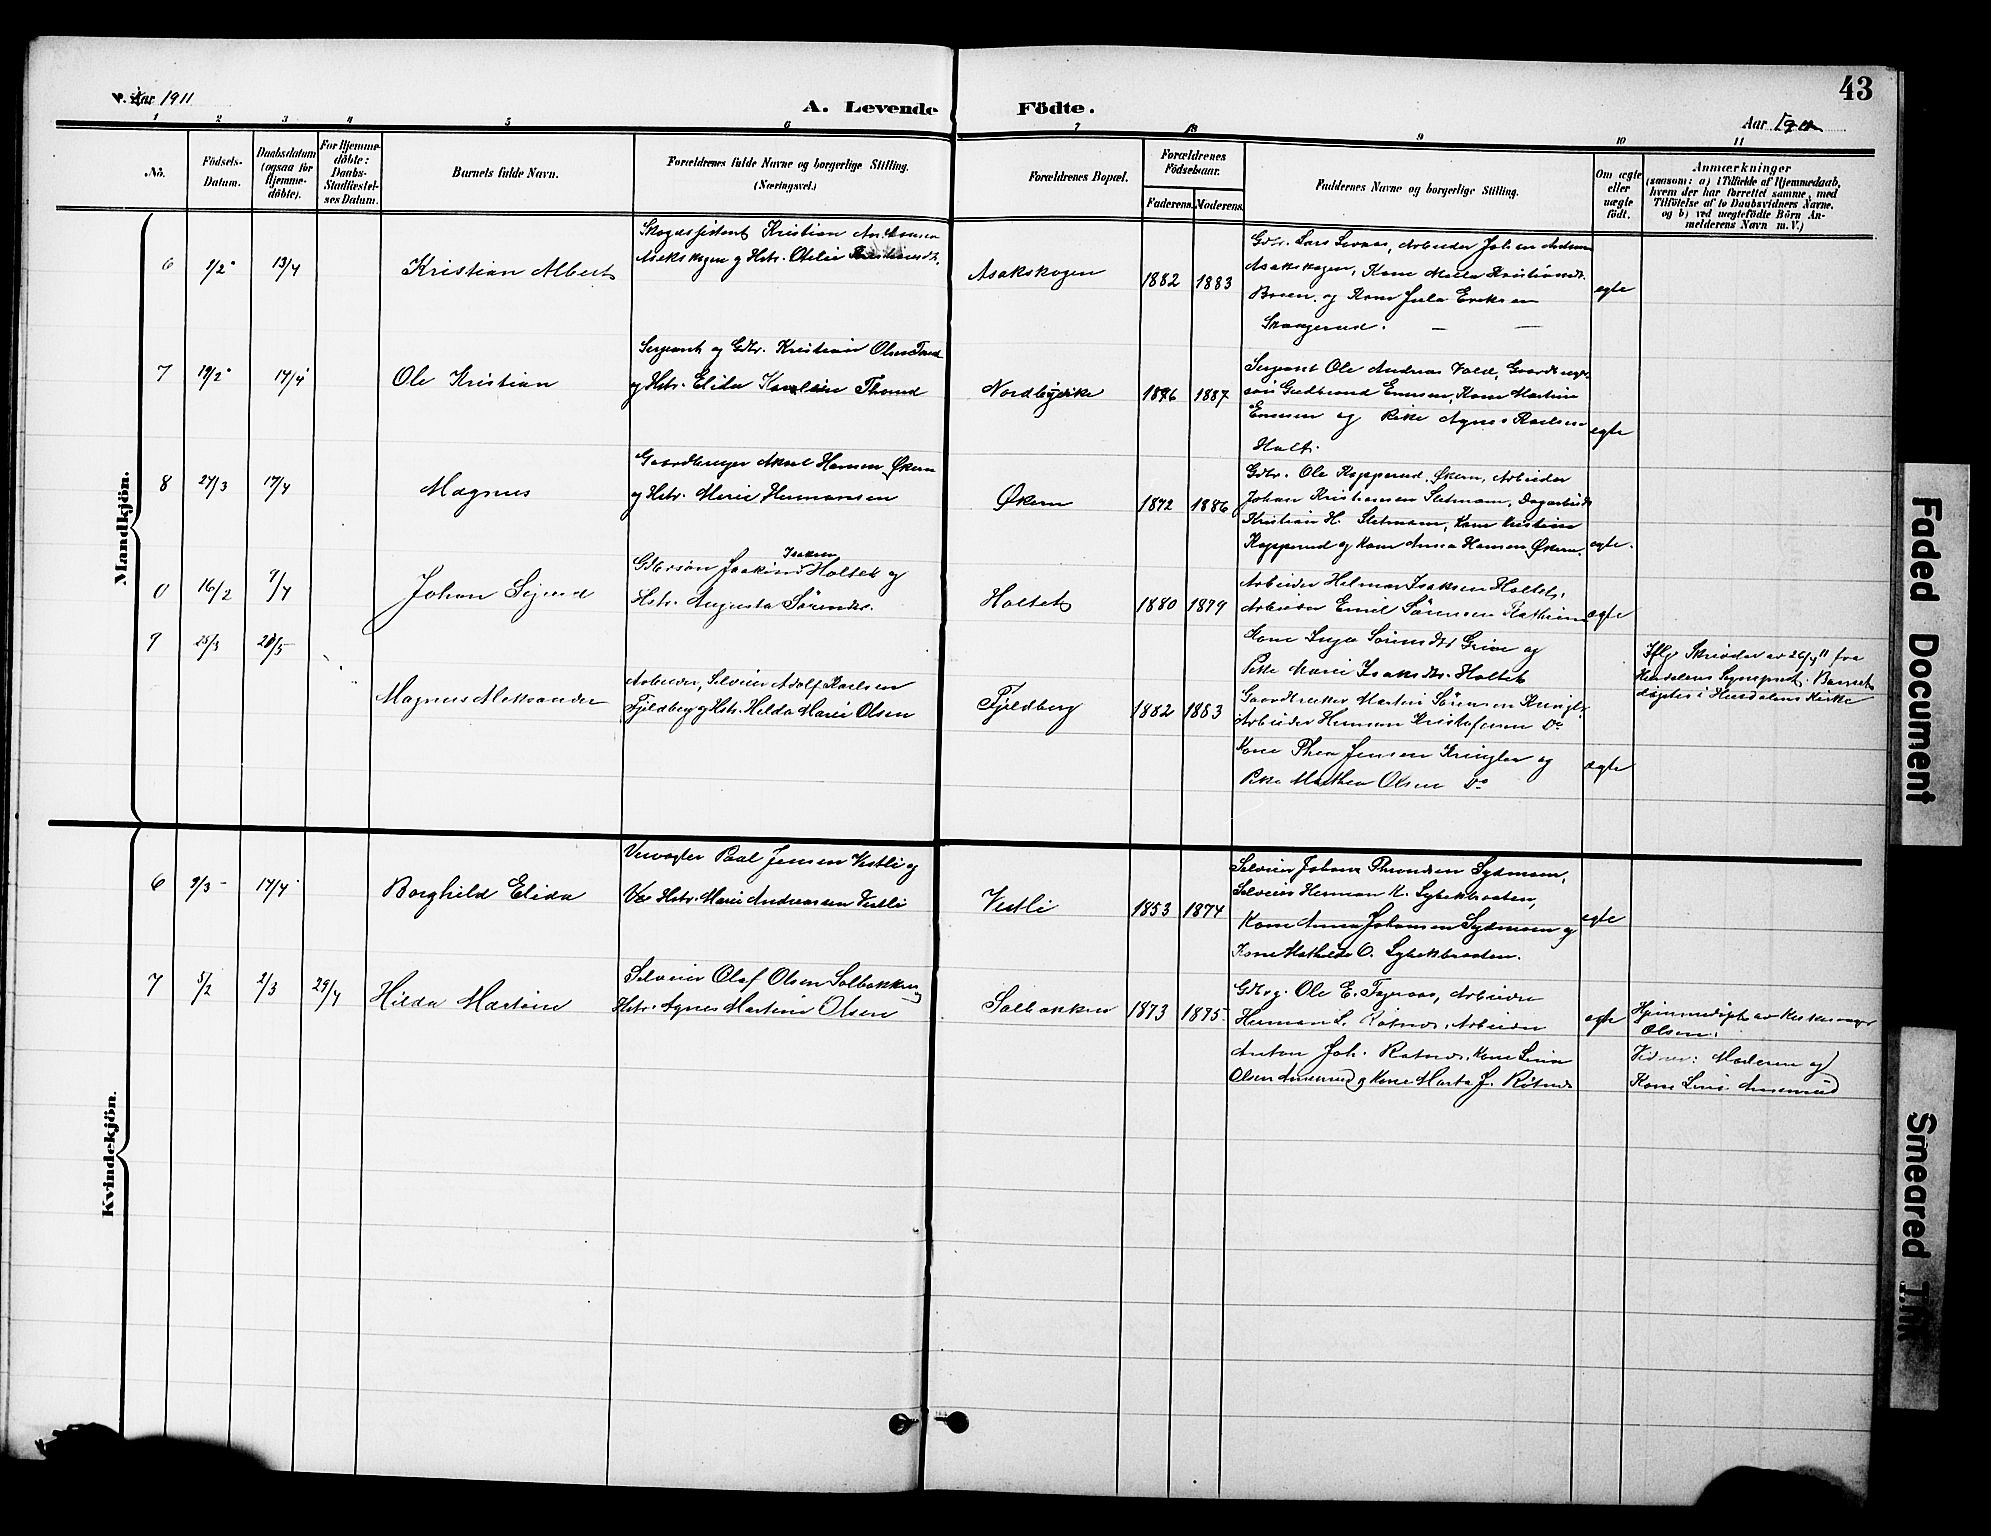 Aar 1911
A. Levende Födte.
43
Aar
1 2 3 4 5 6 7 8 9 10 11
No.
Födsels-Datum.
Daabsdatum (ogsaa for Hjemmedöbte).
For Hjemmedöbte: Daabs-Stadfæstelses Datum.
Barnets fulde Navn.
Forældrenes fulde Navne og borgerlige Stilling. (Næringsvei.)
Forældrenes Bopæl.
Forældrenes Födselsaar.
Faderens. Moderens.
Faddernes Navne og borgerlige Stilling.
Om ægte eller uægte födt.
Anmærkninger
(saasom: a) i Tilfælde af Hjemmedaab, hvem der har forrettet samme, med Tilföielse af to Daabsvidners Navne, og b) ved uægtefödte Börn Anmelderens Navn m.V.)
Mandkjön.
6 1/2 13/4 Kristian Albert
Skogassistent Kristian
Asakskogen og Hstr. Otelie
Asakskogen 1882 1883
Gdbr. Lars Livaas, Arbeider Johan
Asakskogen, Kone
Braaen og Kone Jula Eriksen
Skaugerud.
egte
7 19/2 17/4 Ole Kristian
Sergeant og Gdbr. Kristian Olsen
og Hstr. Elida Karoline
Nordbyeike 1876 1887
Sergeant Ole Andreas Vold, Gaardbruger-
søn Gudbrand Emsen, Kone Martine
Emsen og Pike Agnes Karlsen
Holt.
egte
8 27/3 17/4 Magnus
Gaardbruger Aksel Hansen Økern
og Hstr. Marie Hermansen
Økern 1872 1886
Gdbr. Ole Kopperud, Økern, Arbeider
Johan Kristiansen Sletmoen, Dagarbeid.
Kristian H. Sletmoen, Kone Kristine
Kopperud og Kone Anna Hansen Økern.
egte.
0 16/2 9/4 Johan Sigurd
Gdbrsøn Joakim Isaksen Holtet og
Hstr. Augusta Sørensdr.
Holtet 1880 1879
Arbeider Hilmar Isaksen Holtet,
Arbeider Emil Sørensen
Kone Inga Sørensdtr Grine og
Pike Marie Isaksdtr. Holtet
ægte
9 25/3 28/5
Magnus Aleksander
Arbeider, Selveier Adolf Karlsen
Fjeldberg og Hstr. Hilda Marie Olsen
Fjeldberg 1882 1883
Gaardbruker Martin Sørensen Kringler
Arbeider Herman Kristofersen Do
Kone Thea Jensen Kringler og
Pike Marthea Olsen Do
ægte
Iflg. Skrivelse av 26/9 11 fra
Hurdalens Sogneprest. Barnet
døptes i Hurdalens Kirke
Kvindekjön.
6 9/3 17/4 Borghild Elida
Veivogter Paal Jensen Vestli og
Hstr. Marie Andreassen Vestli
Vestli 1853 1874
Selveier Johan Throndsen Sydmoen,
Selveier Herman K. Lybekbraaten,
Kone Anna Johansen Sydmoen og
Kone Mathilde O. Lybekbraaten.
egte
7 5/2 2/3 29/4 Hilda Martine
Selveier Olaf Olsen Solbakken og
Hstr. Agnes Martine Olsen
Solbakken 1873 1875
Gdbrg. Ole E. Arbeider
Herman L. Røtnes, Arbeider
Anton Joh. Røtnes, Kone Lina
Olsen Amserud og Kone Marta J. Røtnes
egte
Hjemmedøpt av Kirkesanger
Olsen.
Vidner: Moderen og
Kone Lina Amserud
Faded Document
Smeared Ink